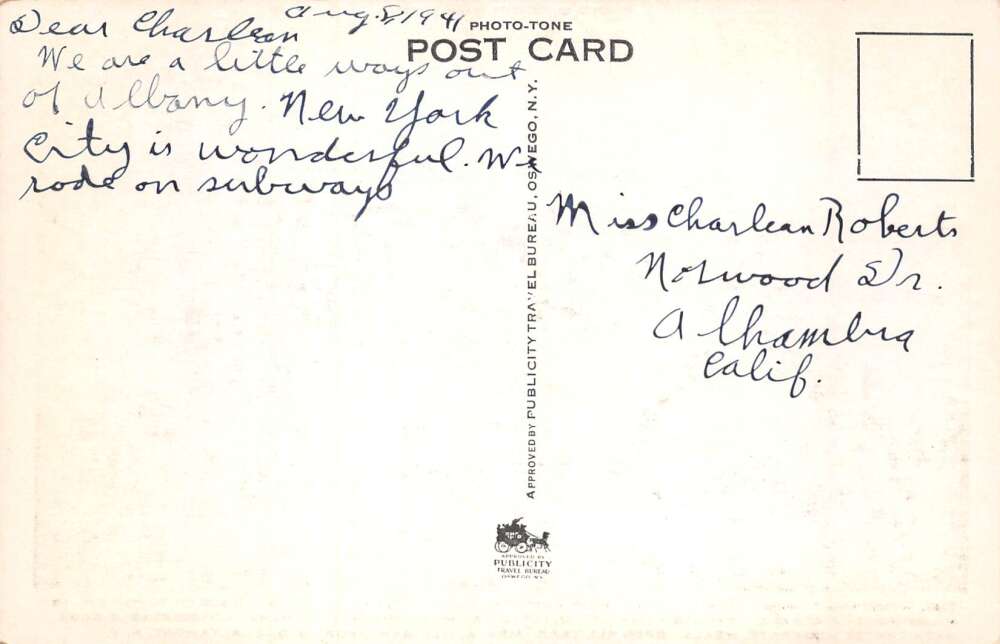 Aug. 8, 1941
Dear Charlean
We are a little ways out
of Albany. New York
City is wonderful. We
rode on subways
PHOTO-TONE
POST CARD
APPROVED BY PUBLICITY TRAVEL BUREAU, OSWEGO, N.Y.
Miss Charlean Roberts
Norwood Dr.
Alhambra
Calif.
APPROVED BY
PUBLICITY
TRAVEL BUREAU
OSWEGO N.Y.